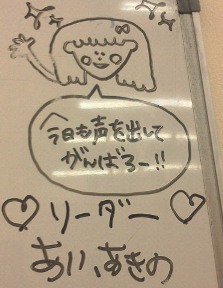 今日も声を出して
がんばろー!!
♡リーダー♡
あい、あきの